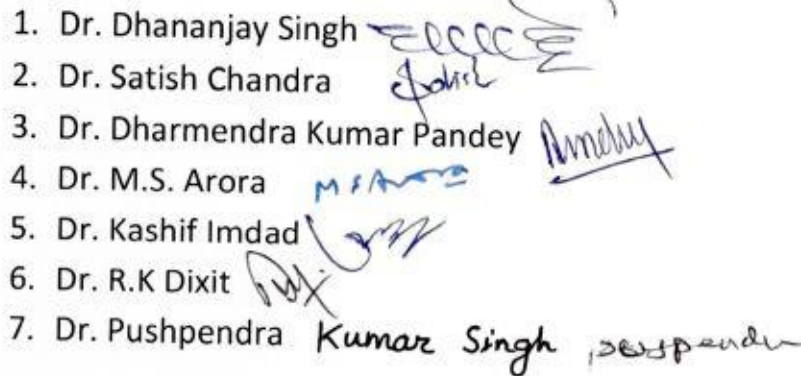 1. Dr. Dhananjay Singh
2. Dr. Satish Chandra Satish
3. Dr. Dharmendra Kumar Pandey
4. Dr. M.S. Arora M S Arora
5. Dr. Kashif Imdad
6. Dr. R.K Dixit
7. Dr. Pushpendra Kumar Singh